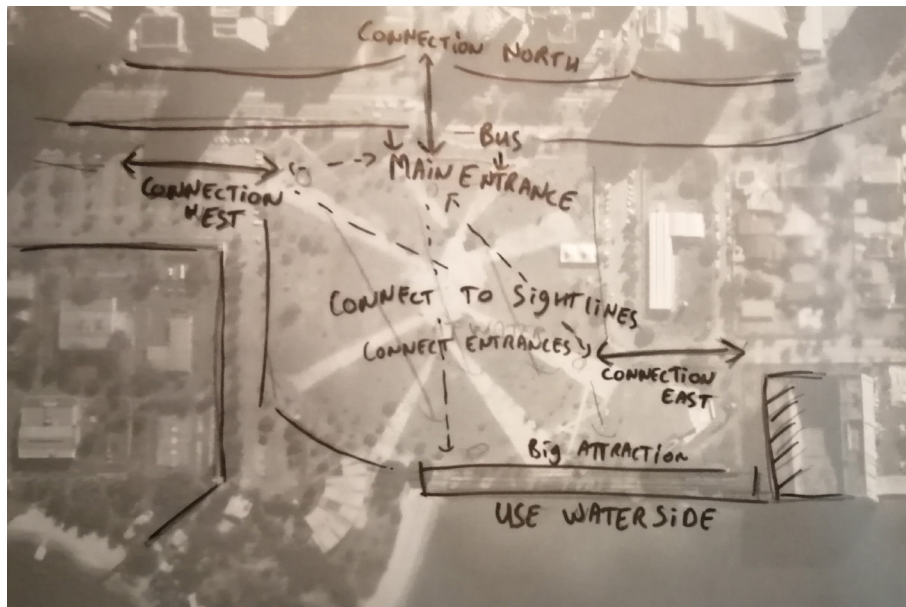 CONNECTION NORTH
BUS
MAIN ENTRANCE
CONNECTION
WEST
CONNECT TO SiGHTLiNES
CONNECT ENTRANCES
CONNECTION
EAST
Big ATTRACTION
USE WATERSiDE